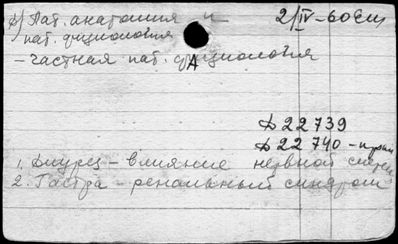 Д) Пат. анатомия и 2/IV-60
пат. физиология
– частная пат. физиология
А
Д 22739
Д 22740 -
1. Диурез – влияние нервной
2. Гастра - ренальный синдром